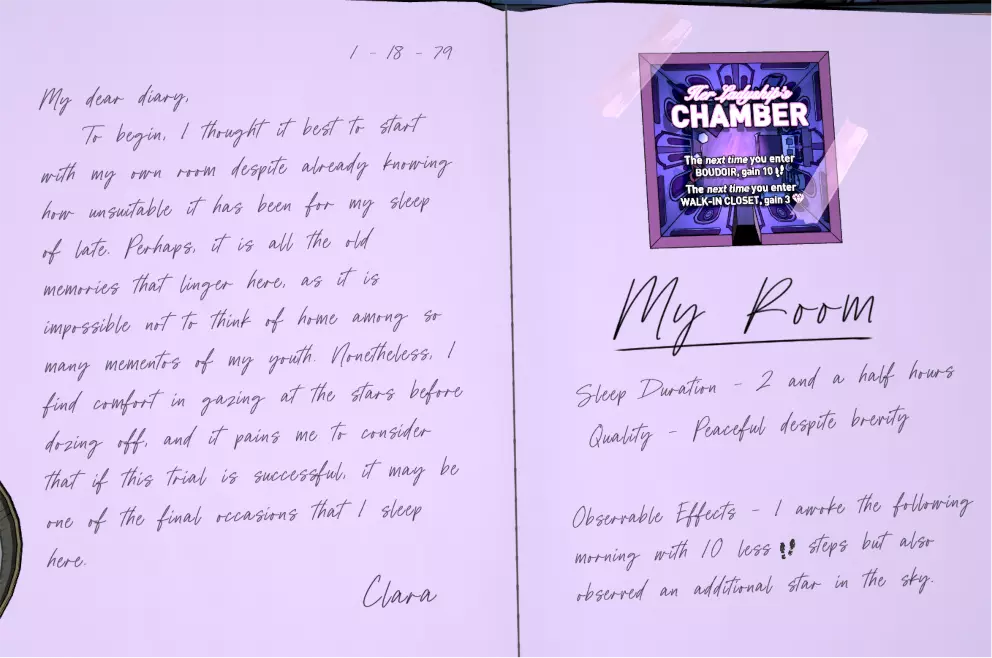 1 - 18 - 79
My dear diary,
To begin, I thought it best to start
with my own room despite already knowing
how unsuitable it has been for my sleep
of late. Perhaps, it is all the old
memories that linger here, as it is
impossible not to think of home among so
many mementos of my youth. Nonetheless, I
find comfort in gazing at the stars before
dozing off, and it pains me to consider
that if this trial is successful, it may be
one of the final occasions that I sleep
here.
Clara
Her Ladyship's
CHAMBER
The next time you enter
BOUDOIR, gain 10
The next time you enter
WALK-IN CLOSET, gain 3
My Room
Sleep Duration - 2 and a half hours
Quality - Peaceful despite brevity
Observable Effects - I awoke the following
morning with 10 less steps but also
observed an additional star in the sky.